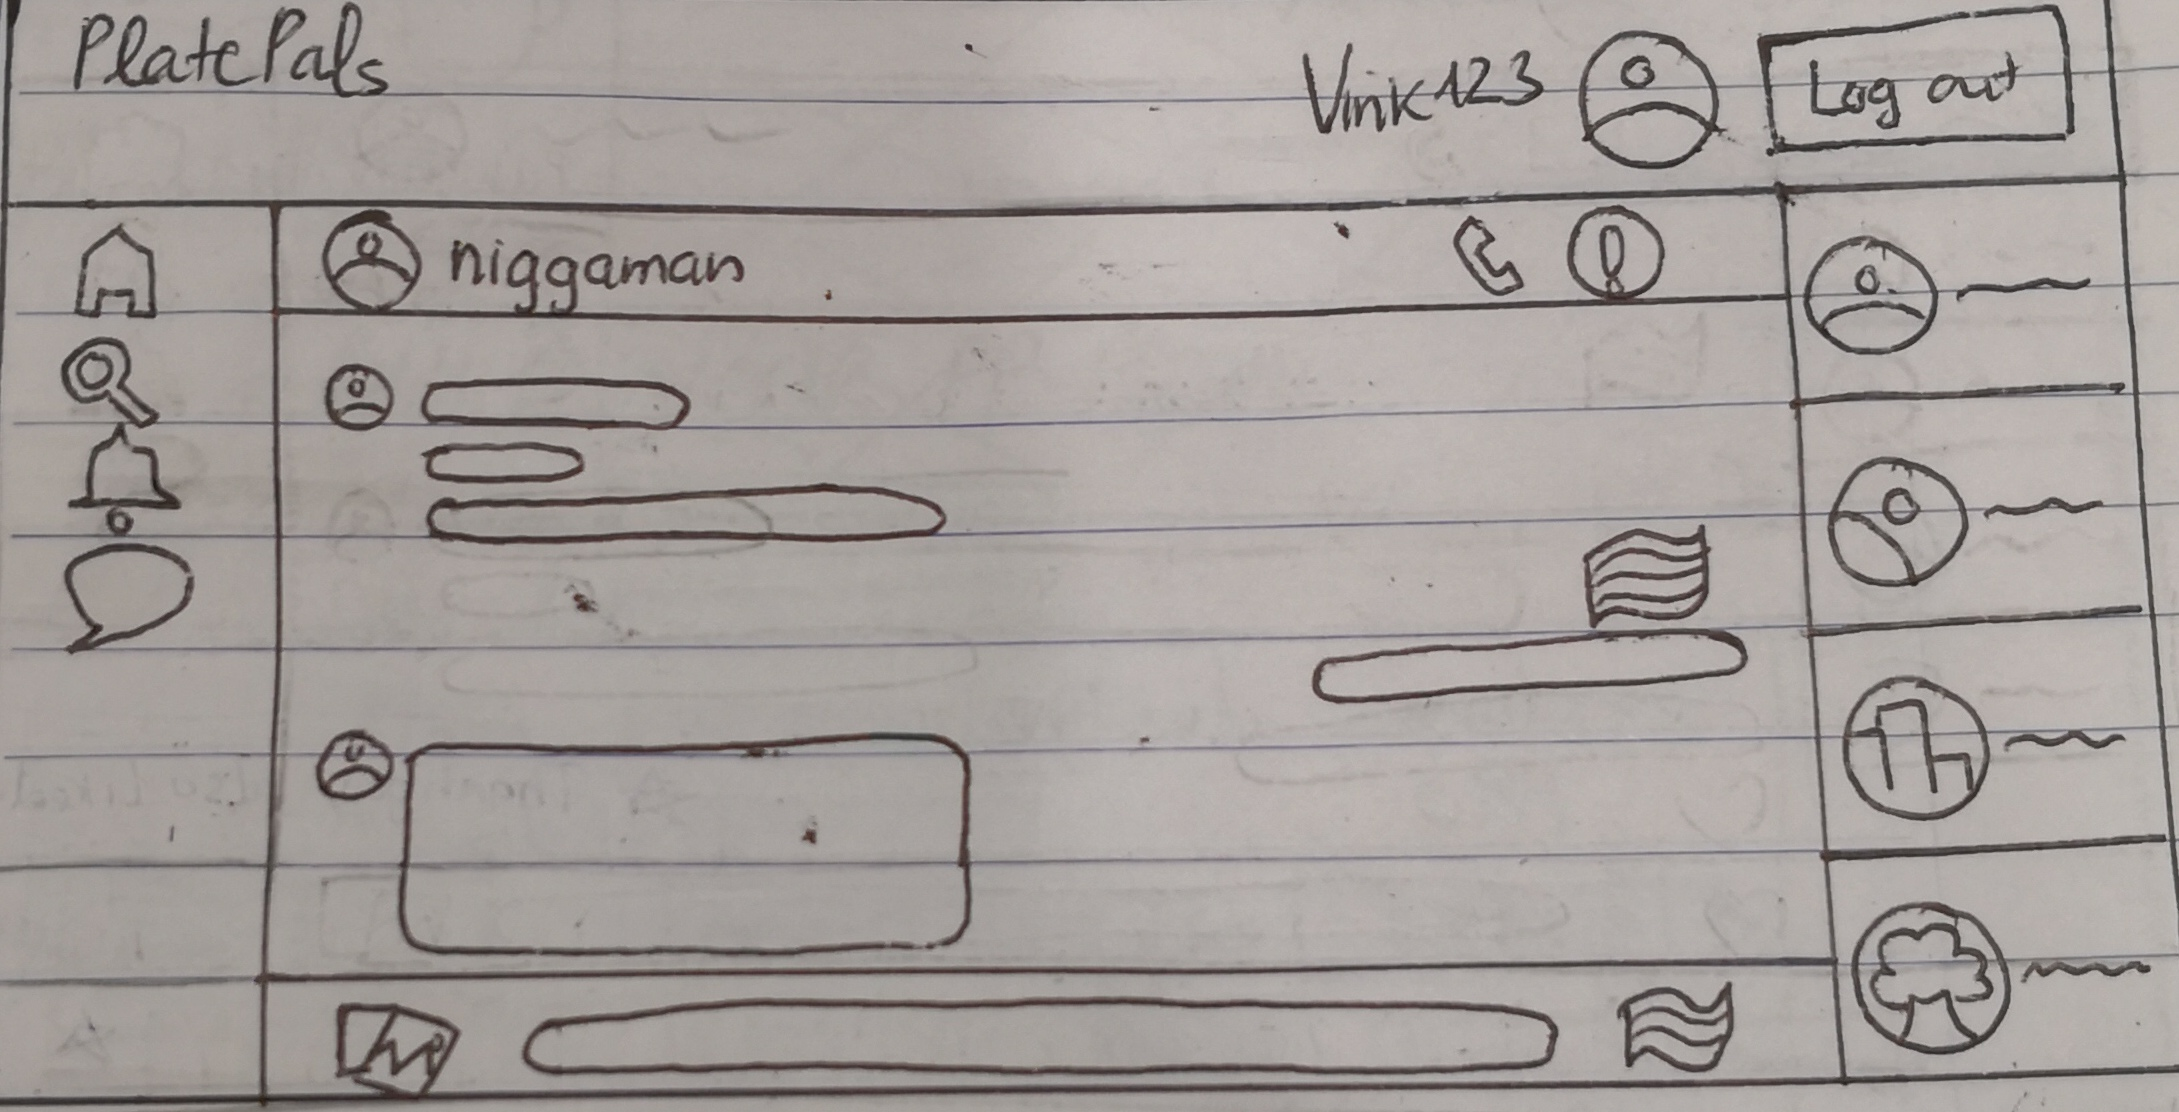 PlatePals
Vink123
Log out
niggaman